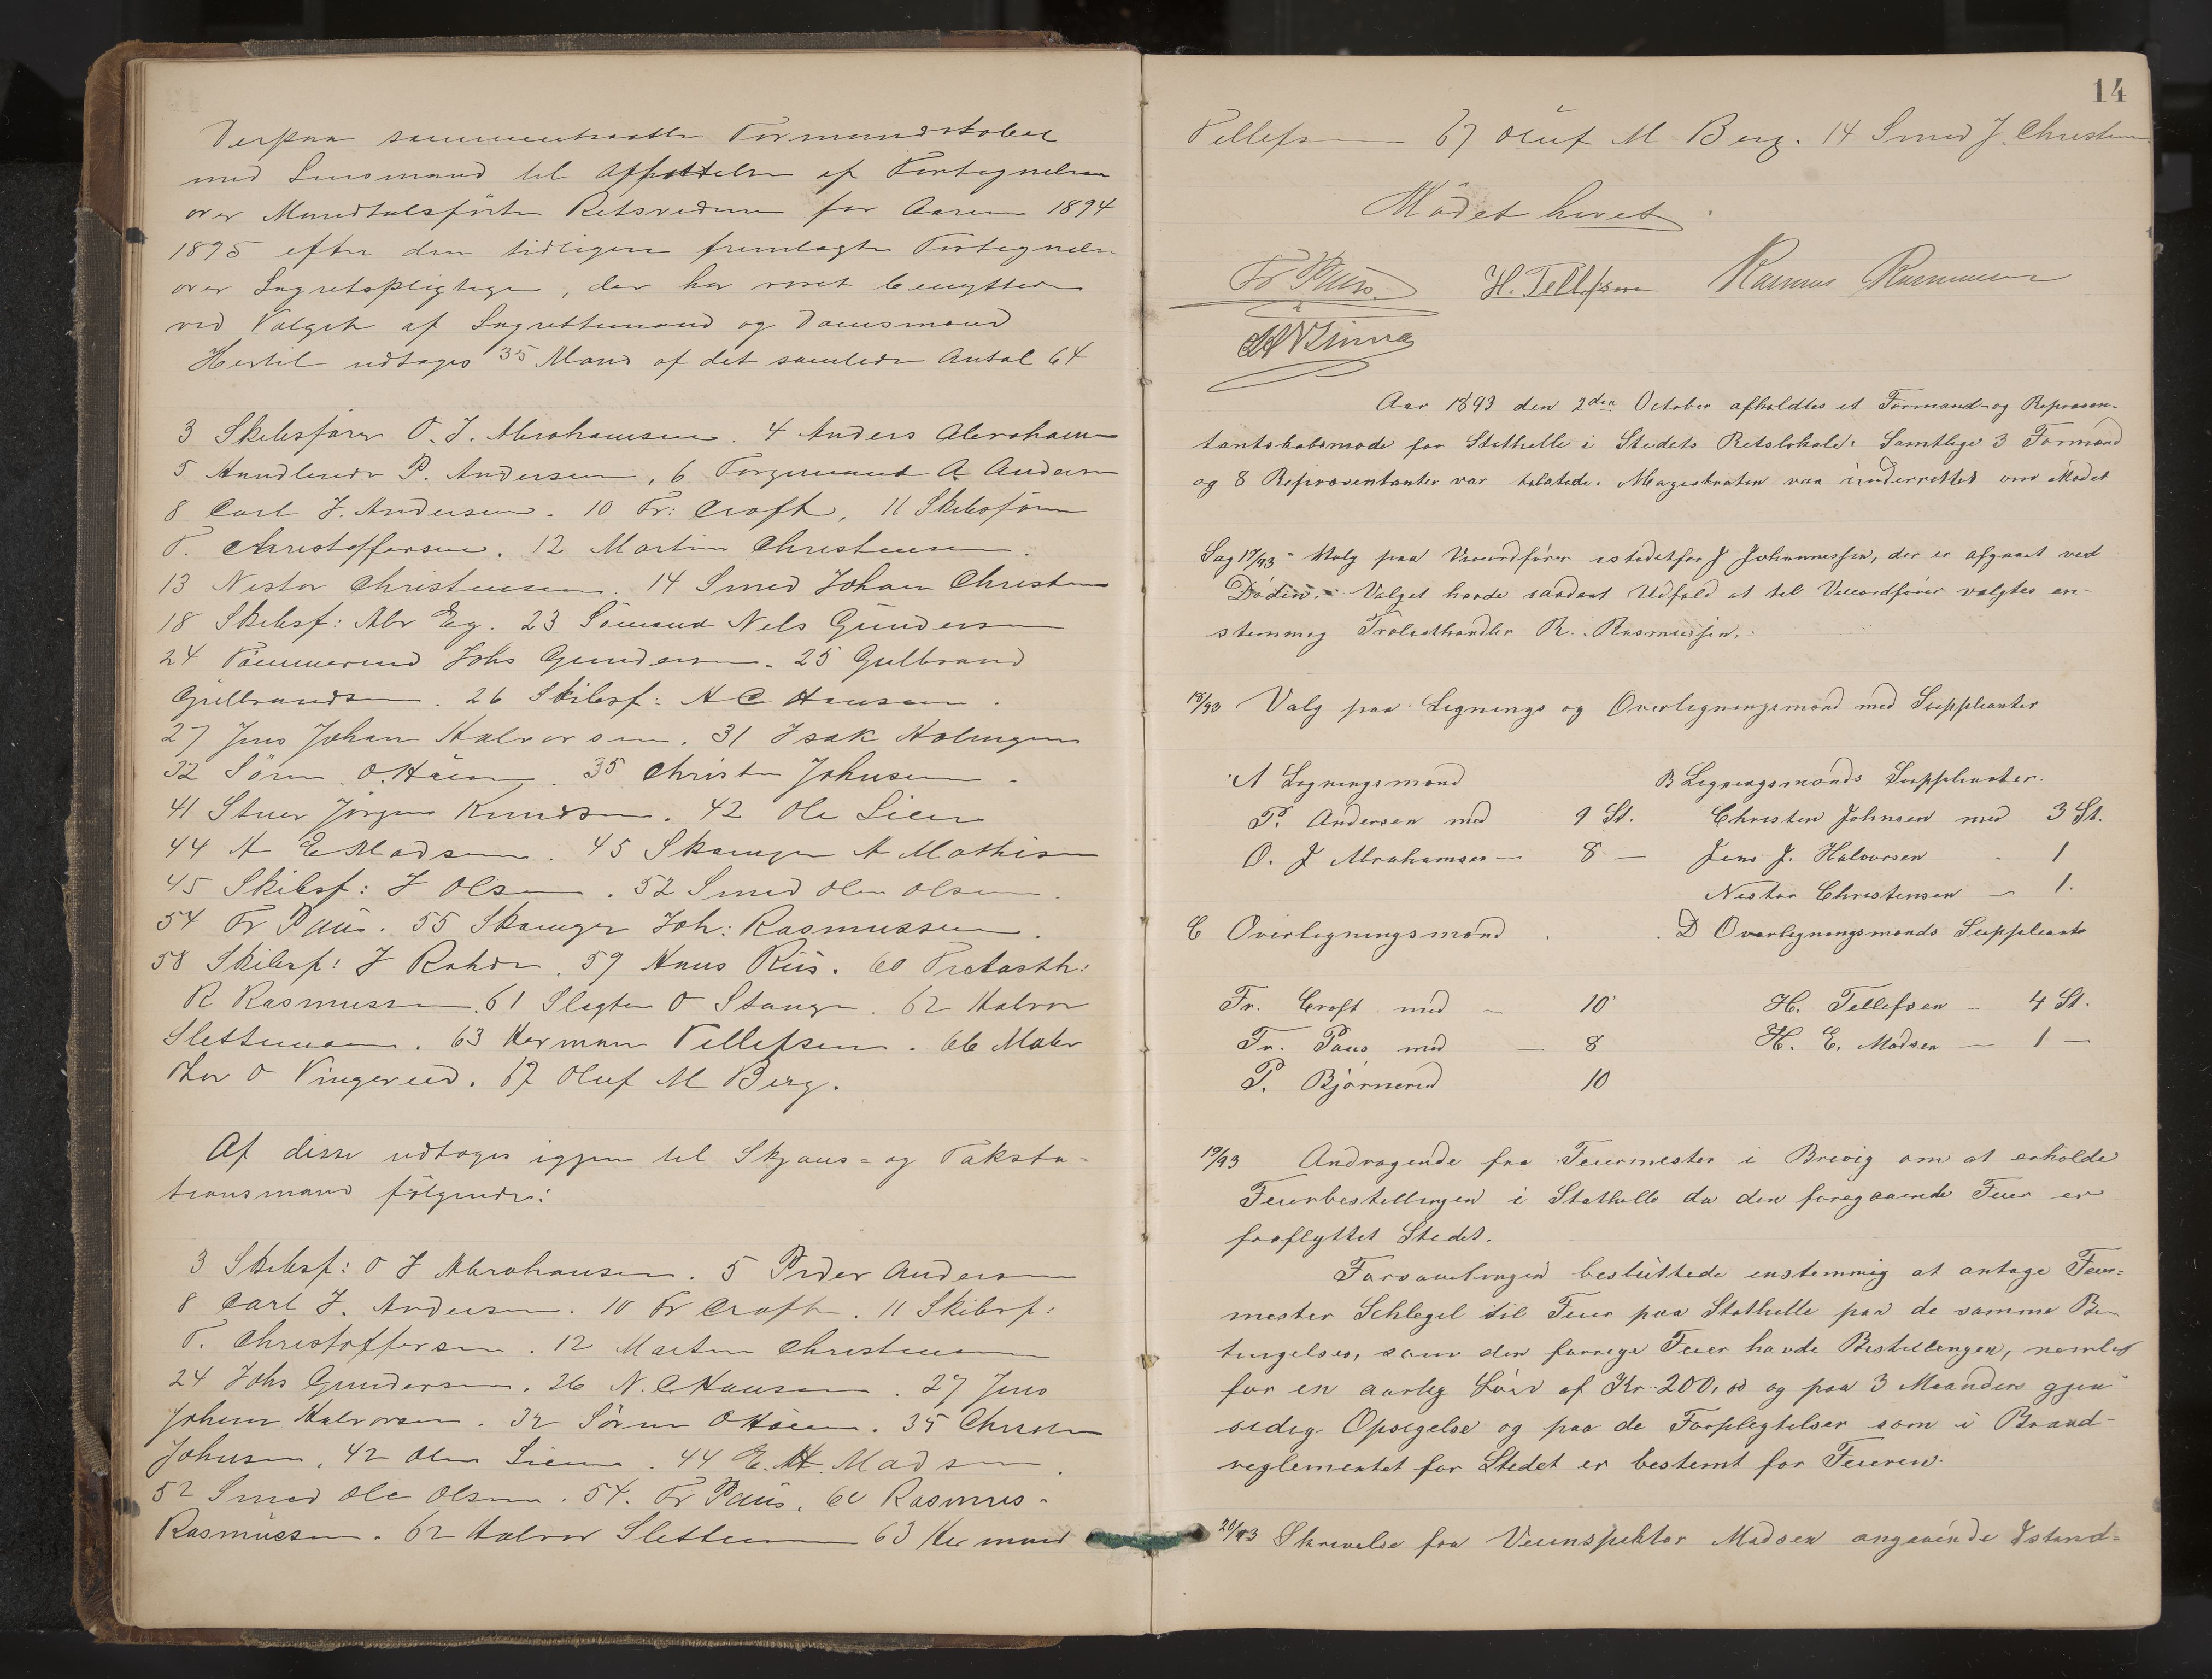 Derpaa sammentraadte Formandskabet
med Lensmand til Affattelse af Fortegnelsen
over Mandtalsförte Retsvidner for Aarene 1894
1895 efter den tidligere fremlagte Fortegnelse
over Lagretspligtige, der har været benyttede
ved Valget af Lagrettemænd og Domsmænd
Hertil udtages 35 Mand af det samlede Antal 64
3 Skibsförer O. J. Abrahamsen. 4 Anders Abrahamsen
5 Handlende P. Andersen, 6 A Andersen
8 Carl J. Andersen. 10 Fr: Croft, 11 Skibsförer
T. Christoffersen. 12 Martin Christensen.
13 Nestor Christensen. 14 Smed Johan Christensen
18 Skibsf: Abr Eg. 23 Sömand Nels Gundersen
24 Tömmermd Johs Gundersen. 25 Gulbrand
Gulbrandsen. 26 Skibsf: N C Hansen.
27 Jens Johan Halvorsen. 31 Isak
32 Sören O. Häen. 35 Christen Johnsen.
41 Stuer Jörgen Knudsen. 42 Ole Lien
44 H E Madsen. 45 A Mathisen
45 Skibsf: J Olsen. 52 Smed Ole Olsen.
54 Fr Paus. 55 Joh: Rasmussen.
58 Skibsf: J Rohde. 59 Hans Riis. 60 Trelasth:
R Rasmussen. 61 Slagter O Stange. 62 Halvor
Slettemoen. 63 Herman Tellefsen. 66 Maler
Chr O Vingereid. 67 Oluf M Berg.
Af disse udtages igjen til Skjöns- og Taksta-
tionsmænd fölgende:
3 Skibsf: O J Abrahamsen. 5 Peder Andersen
8 Carl J. Andersen. 10 Fr Croft. 11 Skibsf:
T. Christoffersen. 12 Martin Christensen
24 Johs Gundersen. 26 N. C Hansen. 27 Jens
Johan Halvorsen. 32 Sören O Häen. 35 Christen
Johnsen, 42 Ole Lien. 44 E. H. Madsen.
52 Smed Ole Olsen. 54. Fr Paus. 60 Rasmus
Rasmussen. 62 Halvor Slettemoen 63 Hermand
14
Tellefsen 67 Oluf M Berg. 14 Smed J. Christensen
Mödet hævet.
Fr Paus. H. Tellefsen Rasmus Rasmussen
Aar 1893 den 2den October afholdtes et Formand- og Repræsen-
tantskabsmøde for Stathelle i Stedets Retslokale. Samtlige 3 Formænd
og 8 Repræsentanter var tilstede. Magistraten var underrettet om Mødet
Sag 17/93 Valg paa Viceordfører istedetfor J Johannessen, der er afgaaet ved
Døden. Valget havde saadant Udfald at til Viceordfører valgtes en-
stemmig Trælasthandler R. Rasmussen.
18/93 Valg paa Lignings og Overligningsmænd med Suppleanter
A Ligningsmænd B Ligningsmænds Suppleanter.
P. Andersen med 9 St. Christen Johnsen med 3 St.
O. J Abrahamsen — 8 — Jens J. Halvorsen - 1
Nestor Christensen — 1.
C Overligningsmænd. D Overligningsmænds Suppleanter
Fr. Croft med — 10 H. Tellefsen — 4 St.
Fr. Paus med — 8 H. E. Madsen — 1 —
P. Bjørnerud 10
19/93 Andragende fra Feiermester i Brevig om at erholde
Feierbestillingen i Stathelle da den foregaaende Feier er
fraflyttet Stedet.
Forsamlingen besluttede enstemmig at antage Feier-
mester Schlegel til Feier paa Stathelle paa de samme Be-
tingelser, som den forrige Feier havde Bestillingen, nemlig
for en aarlig Løn af Kr. 200,00 og paa 3 Maaneders gjen-
sidig Opsigelse og paa de Forpligtelser som i Brand-
reglementet for Stedet er bestemt for Feieren.
20/93 Skrivelse fra Veiinspektør Madsen angaaende Istand-